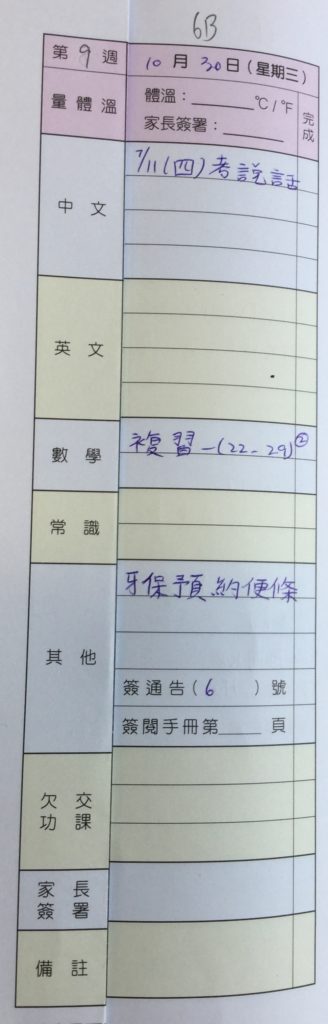 6B
第 9 週 10 月 30 日 (星期三)
量體溫 體溫：______℃/℉ 完成
家長簽署：______
中文 7/11 (四) 考說話
英文
數學 複習一(22-29)②
常識
其他 牙保預約便條
簽通告(6)號
簽閱手冊第____頁
欠交
功課
家長
簽署
備註